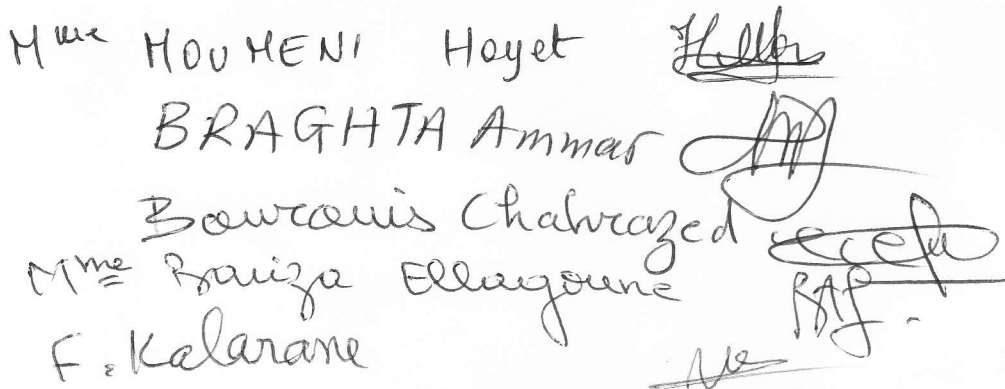 Mme MOUMENI Hayet
BRAGHTA Ammar
Bourouis Chahrazed
Mme Bouiza Ellagoune
F. Kalarane